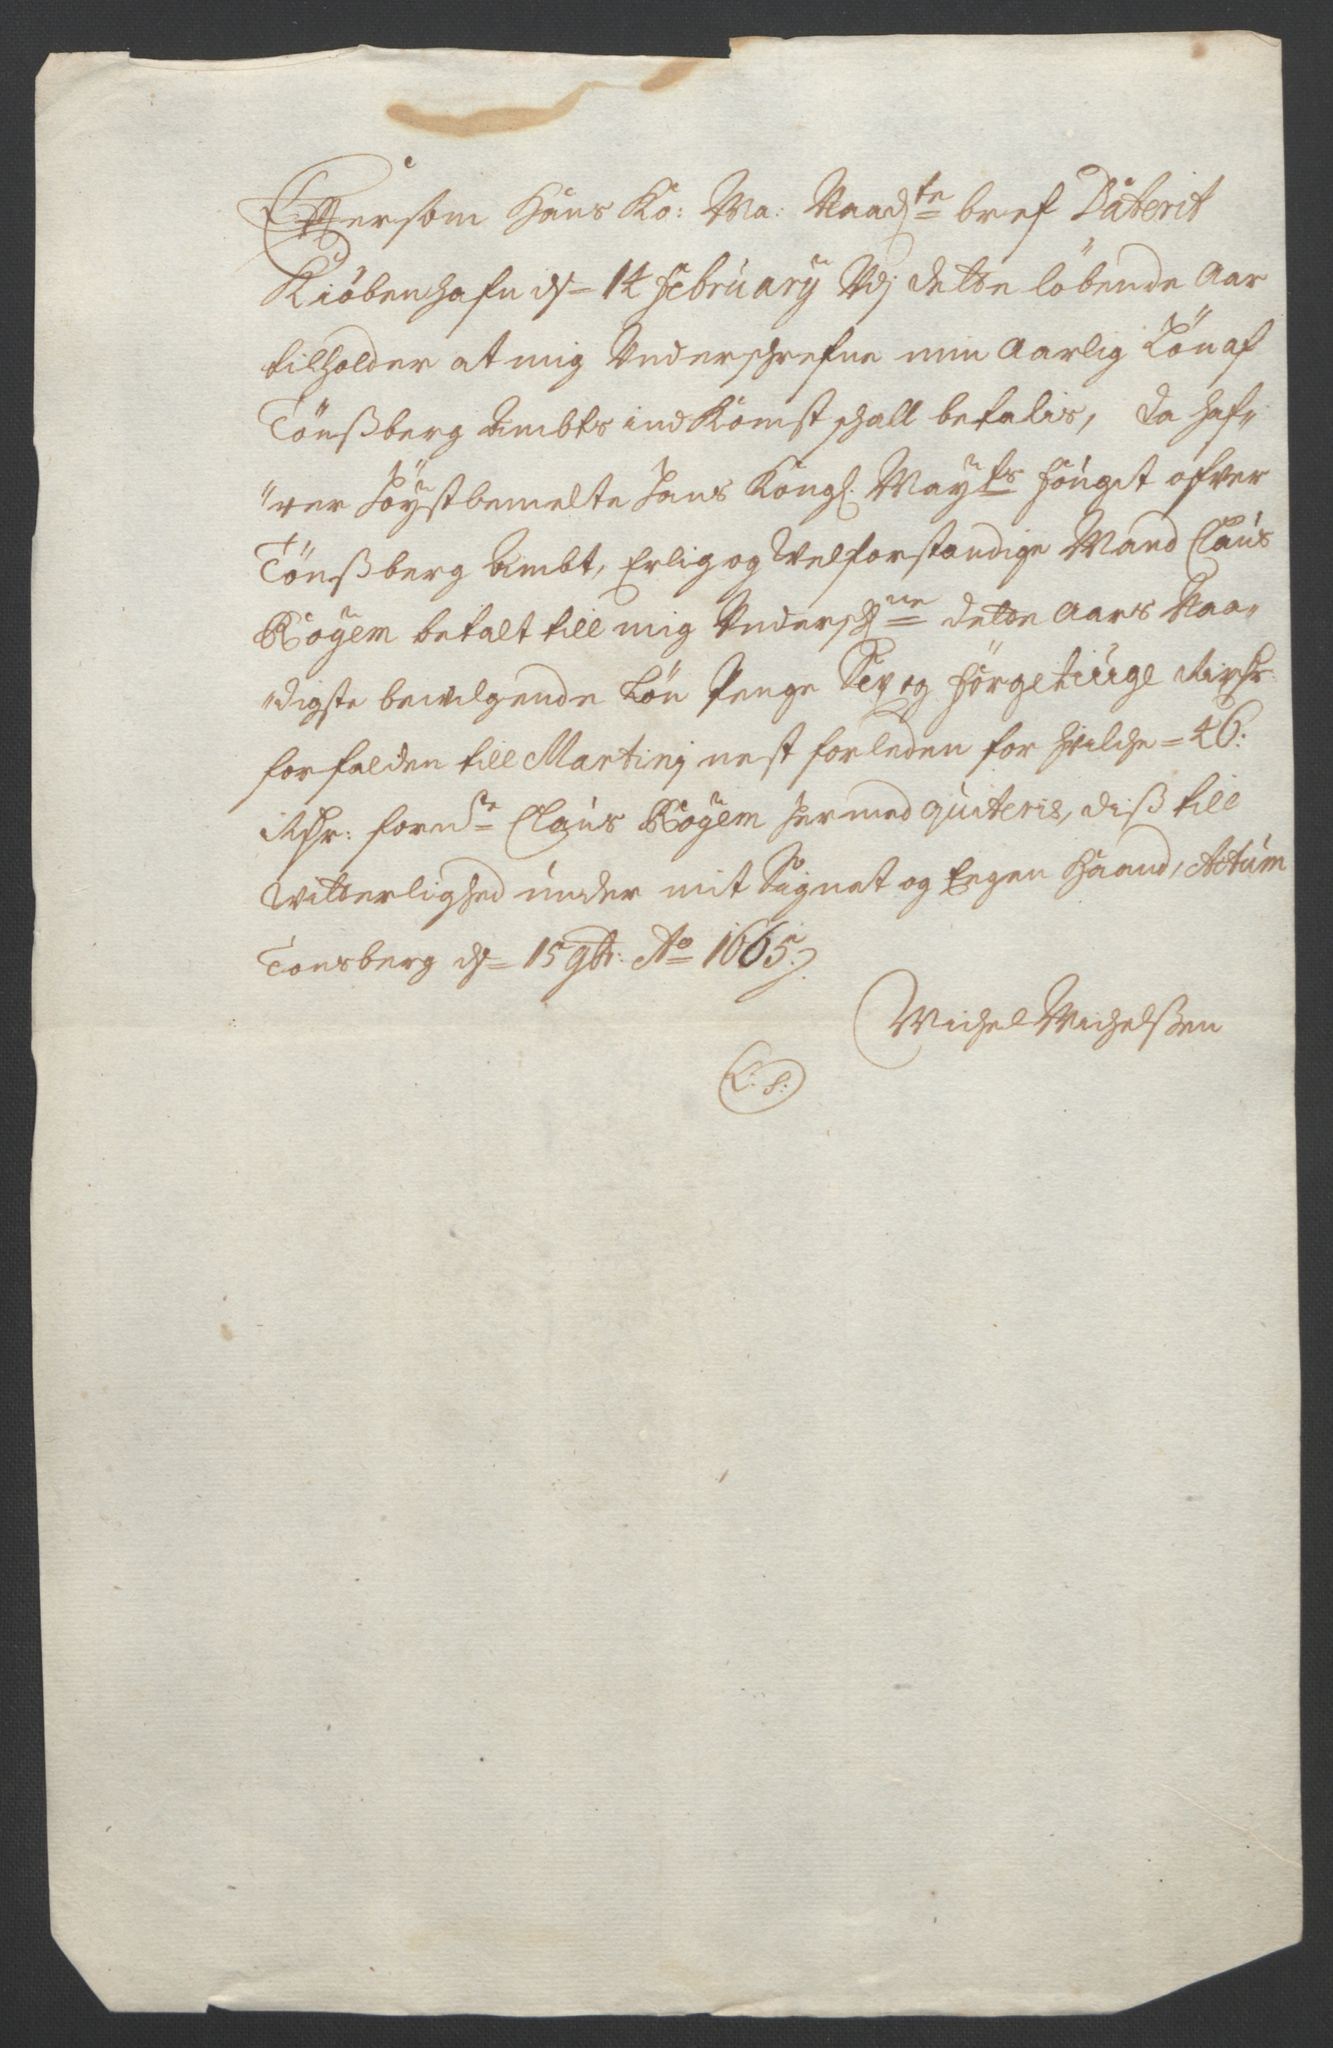 Effersom Hans Ko: Ma: Naadste bref Daterit
Kiöbenhafn d. 14 February Udj dette löbende Aar
tilholder at mig Underschrefne min Aarlig Lön af
Tönßberg Ambts indKomst schall betalis, da haf„
„ver Höystbemelte Hans Kongl. Mayts fougit ofver
Tönßberg Ambt, Erlig og Velforstandige Mand Claus
Röyem betalt till mig Underschne dette Aars Naa„
„digste bevilgende Lön Penge Sex og förgetiuge Rixdr
forfalden till Martinj nest forleden for hvilche = 46:
Rdr: fornde Claus Röyem hermed quiteris, diß till
vitterlighed under mit Signet og Eegen Haand, Actum
Tonsberg d. 15 9br: Ao 1665.
Michel Michelßen
L: S: